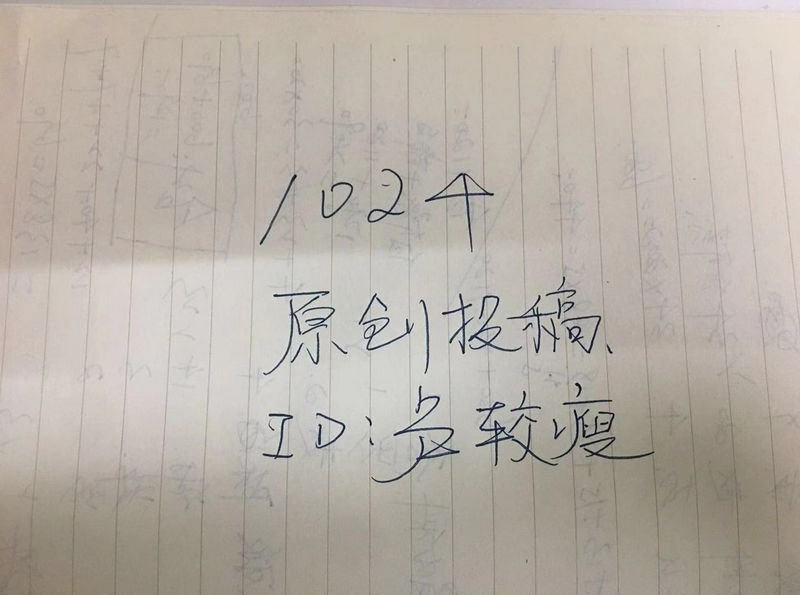 102个
原创投稿
ID:较瘦